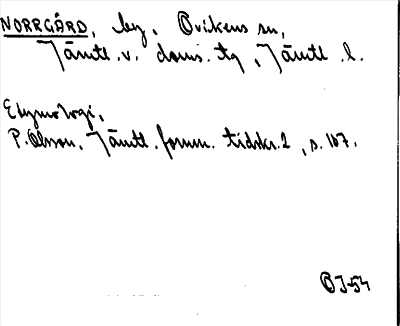 NORRGÅRD, by, Ovikens sn,
Jämtl. v. doms. tg, Jämtl. l.
Etymologi,
P. Olsson, Jämtl. fornm. tidskr. 2, s. 107.
OJ-54